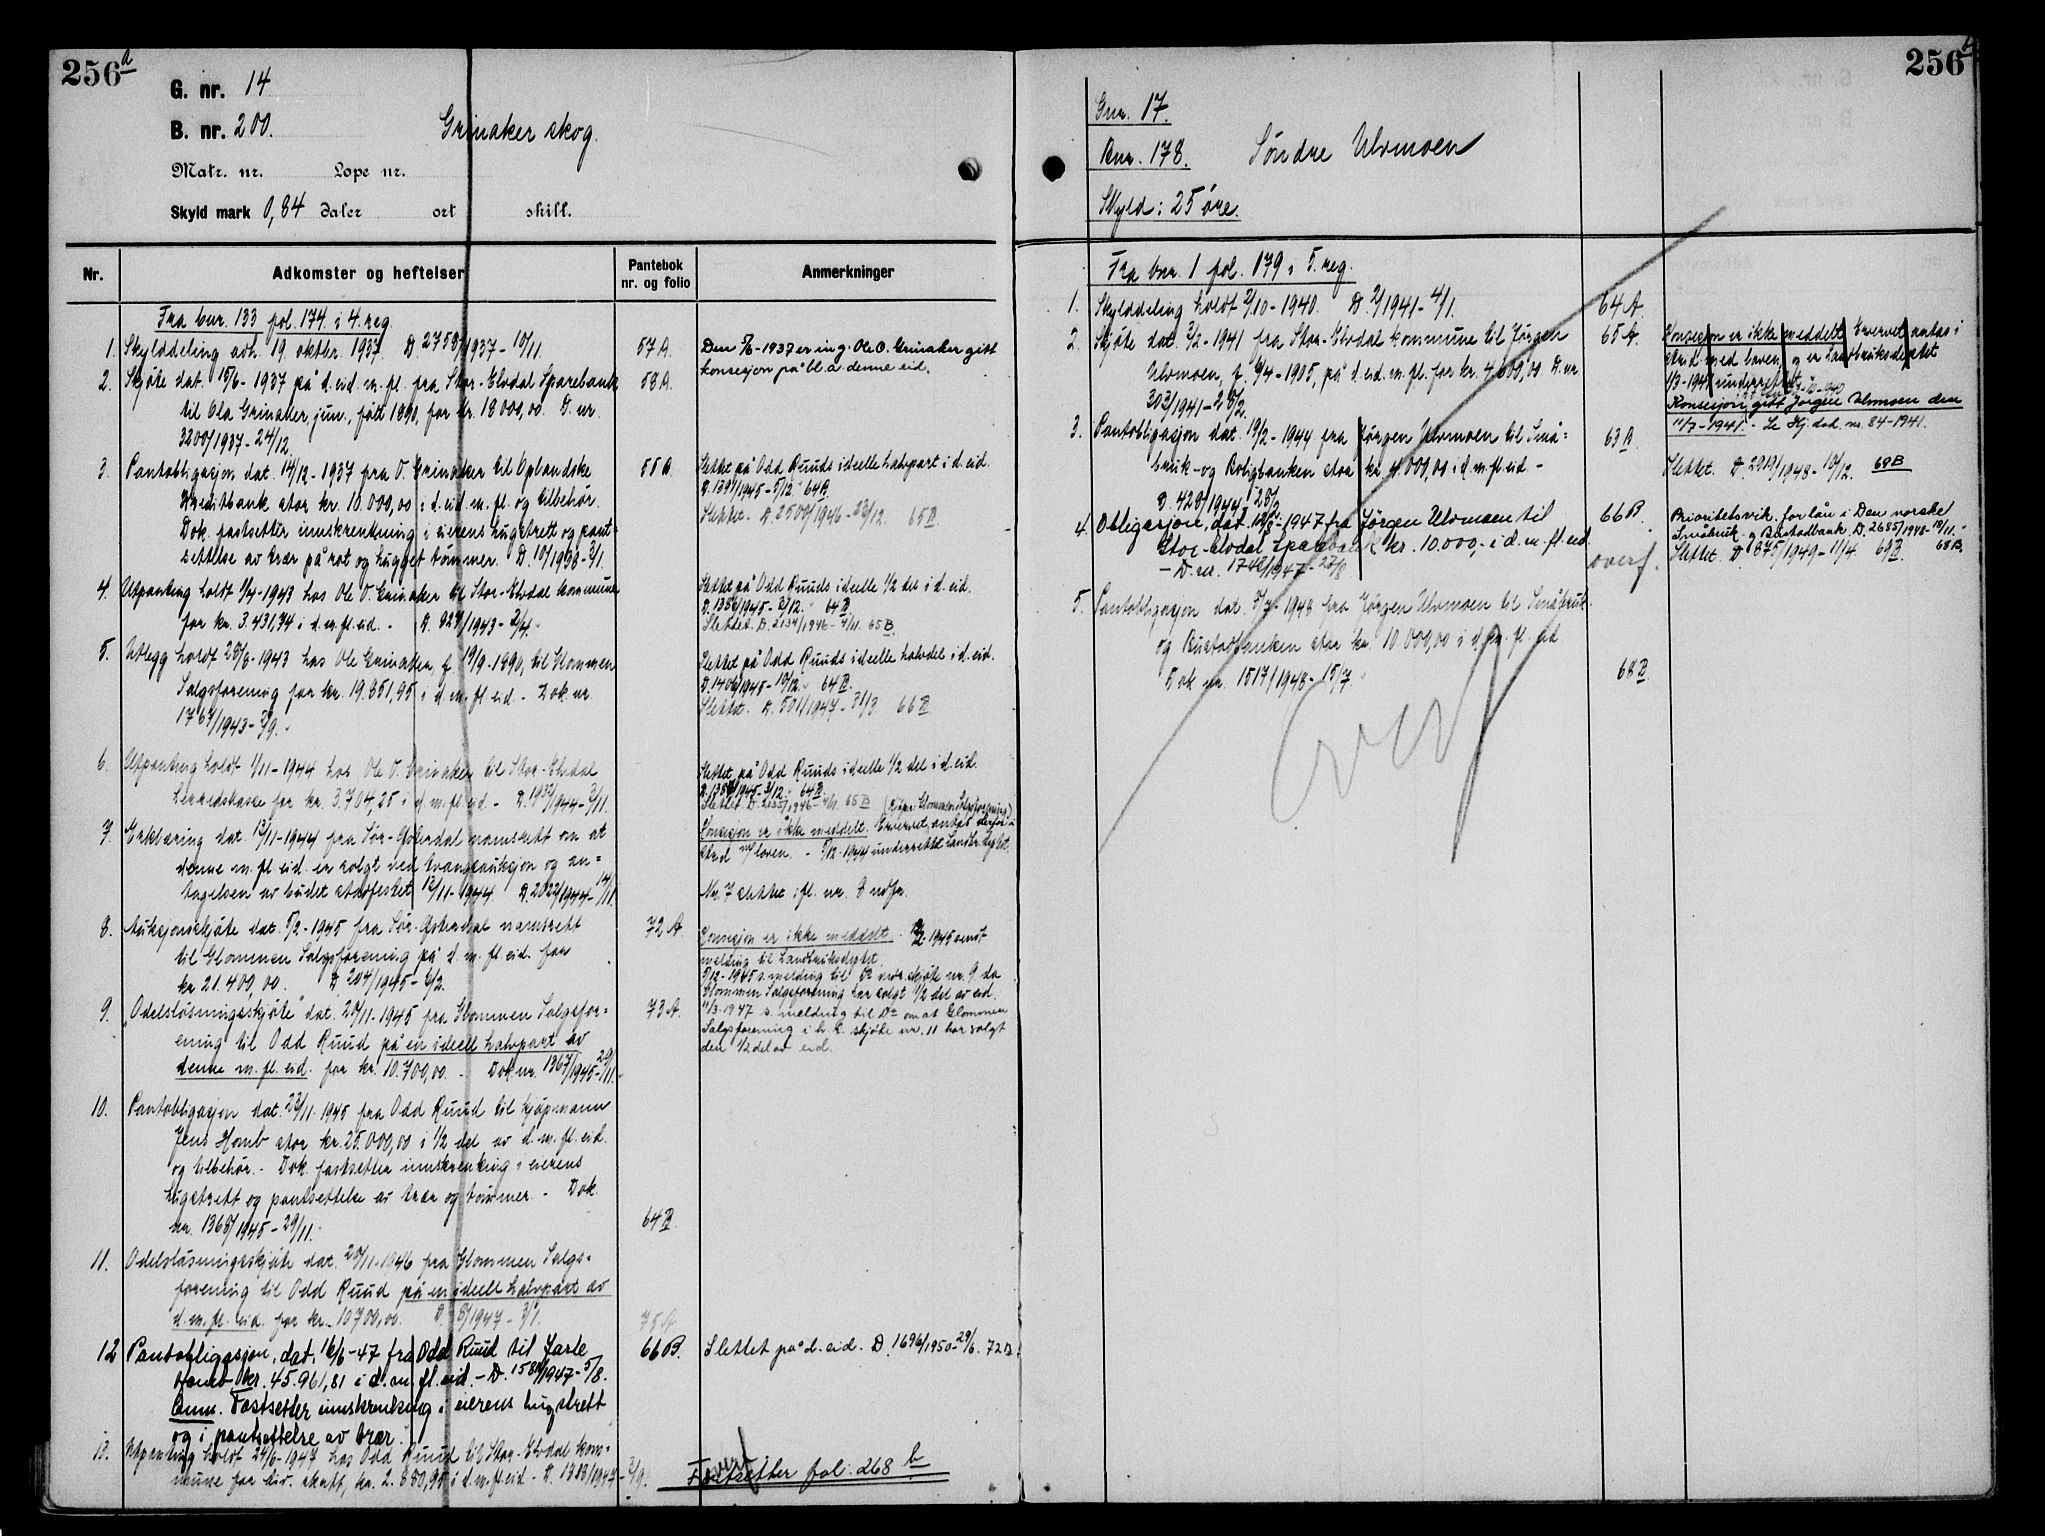 256 a
G. nr. 14
B. nr. 200. Grinaker skog.
Matr. nr. Lope nr.
Skyld mark 0,84 daler ort skill.
Nr. Adkomster og heftelser Pantebok nr. og folio Anmerkninger
Fra bnr. 133 fol. 174 i 4. reg.
1. Skylddeling avh. 19. oktbr. 1937. D. 2758/1937 - 10/11. 57 A.
2. Skjøte dat. 15/6 - 1937 på d. eid. m. fl. fra Stor-Elvdal Sparebank 58 A.
til Ola Grinaker jun., født 1890, for kr. 18 000,00. D. nr.
3200/1937 - 24/12.
Den 5/6 - 1937 er ing. Ole O. Grinaker gitt
konsesjon på bl. a. denne eid.
3. Pantobligasjon dat. 14/12 - 1937 fra O. Grinaker til Oplandske 55 A
Kreditbank stor kr. 10.000,00 i d. eid. m. fl. og tilbehør.
Dok. fastsetter innskrenkning i eierens hugstrett og pant-
settelse av trær på rot og hugget tømmer. D. 10/1938 - 3/1.
Slettet på Odd Ruuds ideelle halvpart i d. eid.
D. 1397/1945 - 5/12. 64 B.
Slettet. D. 2509/1946 - 23/12. 65 B.
4. Utpanting holdt 1/4 - 1943 hos Ole O. Grinaker til Stor-Elvdal kommune
for kr. 3.431,34 i d. m. fl. eid. - D. 829/1943 - 2/4.
Slettet på Odd Ruuds ideelle 1/2 del i d. eid.
D. 1356/1945 - 3/12. 64 B.
Slettet. D. 2134/1946 - 4/11. 65 B.
5. Utlegg holdt 28/8 - 1943 hos Ole Grinaker, f. 19/9 - 1890, til Glommen
Salgsforening for kr. 19.851,95 i d. m. fl. eid. - Dok. nr.
1767/1943 - 3/9.
Slettet på Odd Ruuds ideelle halvdel i d. eid.
D. 1406/1945 - 10/12. 64 B.
Slettet. D. 501/1947 - 31/3. 66 B.
6. Utpanting holdt 1/11 - 1944 hos Ole O. Grinaker til Stor-Elvdal
herredskasse for kr. 3.704,25 i d. m. fl. eid. - D. 1932/1944 - 3/11.
Slettet på Odd Ruuds ideelle 1/2 del i d. eid.
D. 1357/1945 - 3/12. 64 B.
Slettet D. 2135/1946 - 4/11. 65 B
7. Erklæring dat. 13/11 - 1944 fra Sør-Østerdal namsrett om at
denne m. fl. eid. er solgt ved tvangsauksjon og an-
tagelsen av budet stadfestet 13/11 - 1944. D. 2022/1944 - 14/11.
(Kjøper: Glommen Salgsforening)
Konsesjon er ikke meddelt. Ervervet antas derfor i
strid m/ loven. - 5/12 - 1944 underrettet Landbr. dpt.
Nr. 7 slettet ifl. nr. 8 ndfr.
8. Auksjonsskjøte dat. 5/2 - 1945 fra Sør-Østerdal namsrett 72 A.
til Glommen Salgsforening på d. m. fl. eid. for
kr. 21.400,00. D. 204/1945 - 6/2.
Konsesjon er ikke meddelt. - 1945 sendt
melding til Landbruksdptet.
5/12 - 1945 s. melding til do vedr. skjøte nr. 9 da
Glommen Salgsforening har solgt 1/2 del av eid.
11/3 - 1947 s. melding til Do om at Glommen
Salgsforening i h. t. skjøte nr. 11 har solgt
den 1/2 del av eid.
9. "Odelsløsningsskjøte" dat. 20/11 - 1945 fra Glommen Salgsfor- 73 A.
ening til Odd Ruud på en ideell halvpart av
denne m. fl. eid. for kr. 10.700,00. - Dok. nr. 1367/1945 - 29/11.
10. Pantobligasjon dat. 23/11 - 1945 fra Odd Ruud til kjøpmann
Jens Homb stor kr. 25.000,00 i 1/2 del av d. m. fl. eid.
og tilbehør. - Dok. fastsetter innskrenking i eierens
hugstrett og pantsettelse av trær og tømmer. - Dok.
nr. 1368/1945 - 29/11. 64 B.
11. Odelsløsningsskjøte dat. 20/11 - 1946 fra Glommen Salgs-
forening til Odd Ruud på en ideell halvpart av
d. m. fl. eid. for kr. 10700,00. D. 8/1947 - 3/1. 75 A
12 Pantobligasjon, dat. 16/6 - 47 fra Odd Ruud til Jarle 66 B. Slettet på d. eid. D. 1696/1950 - 29/6. 72 B.
Homb kr. 45.961,81 i d. m. fl. eid. - D. 1580/1947 - 5/8.
Anm. Fastsetter innskrenking i eierens hugstrett
og i pantsettelse av trær.
13. Utpanting holdt 24/6 - 1947 hos Odd Ruud til Stor-Elvdal kom-
mune for div. skatt, kr. 2.850,95 i d. m. fl. eid. - D. 1383/1947 - 2/9.
Fortsetter fol. 268 b
overf.
256 b
Gnr. 17.
Bnr. 178. Søndre Ulvmoen
Skyld: 25 øre.
Fra bnr. 1 fol. 179 i 5. reg.
1. Skylddeling holdt 2/10 - 1940. D. 2/1941 - 4/1. 64 A.
2. Skjøte dat. 3/2 - 1941 fra Stor-Elvdal kommune til Jørgen 65 A.
Ulvmoen, f. 6/4 - 1905, på d. eid. m. fl. for kr. 4.600,00. D. nr.
303/1941 - 28/2.
Konsesjon er ikke meddelt. Ervervet antas i
strid med loven og er Landbruksdeptet
1/3 - 1941 underrettet.
Konsesjon gitt Jørgen Ulvmoen den
11/7 - 1941. - Se Hj. dok. nr. 84 - 1941.
3. Pantobligasjon dat. 19/2 - 1944 fra Jørgen Ulvmoen til Små- 63 B.
bruk- og Boligbanken stor kr. 4.000,00 i d. m. fl. eid. -
D. 428/1944 - 28/2.
Slettet. D. 2919/1948 - 10/12. 69 B
4. Obligasjon, dat. 12/8 - 1947 fra Jørgen Ulvmoen til 66 B.
Stor-Elvdal Sparebank kr. 10.000,- i d. m. fl. eid.
- D. nr. 1742/1947 - 27/8 overf.
Prioritetsvik. for lån i Den norske
Småbruk- og Bustadbank D. 2685/1948 - 18/11. 68 B.
Slettet. D. 875/1949 - 11/4. 69 B.
5. Pantobligasjon dat. 7/7 - 1948 fra Jørgen Ulvmoen til Småbruk-
og Bustadbanken stor kr. 10 000,00 i d. m. fl. eid
Dok nr. 1517/1948 - 15/7. 68 B.
overf